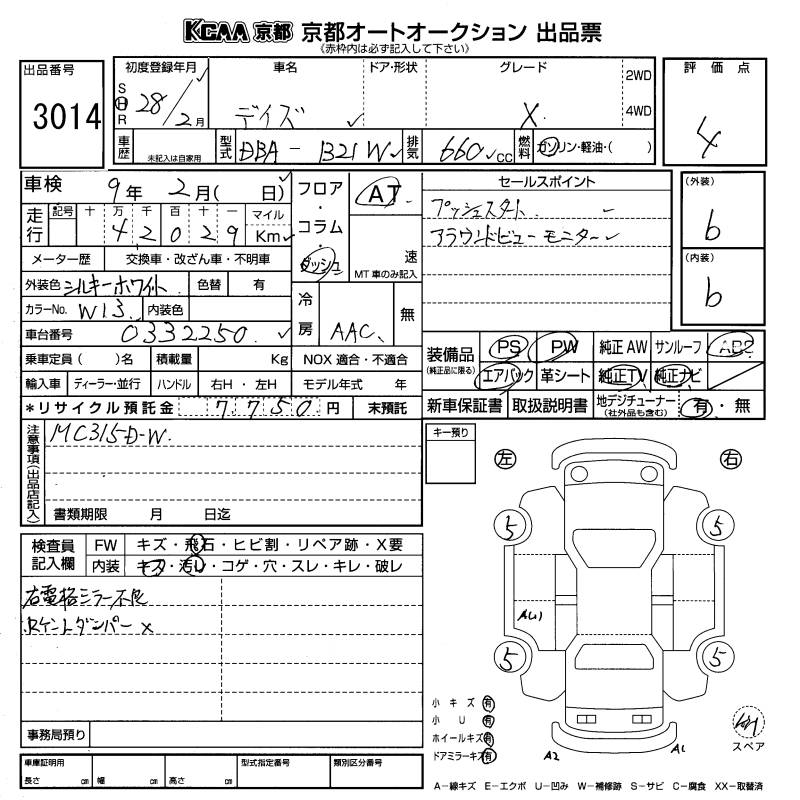 KCAA 京都 京都オートオークション 出品票
(赤枠内は必ず記入して下さい)
出品番号
3014
初度登録年月 車名 ドア・形状 グレード
S H R 28/2月 デイズ X 2WD 4WD
車歴 未記入は自家用 型式 DBA-B21W 排気 660cc 燃料 ガソリン・軽油・( )
評価点
4
車検 9年 2月( 日)
走行 記号 十 万 千 百 十 一 マイル
42029 Km
メーター歴 交換車・改ざん車・不明車
外装色 シルキーホワイト 色替 有
カラーNo. W13 内装色
車台番号 0332250
乗車定員( )名 積載量 Kg NOX 適合・不適合
輸入車 ディーラー・並行 ハンドル 右H・左H モデル年式 年
*リサイクル預託金 7750円 未預託
フロア・コラム・ダッシュ
AT
速
MT車のみ記入
冷房 AAC 無
セールスポイント
プッシュスタート
アラウンドビューモニター
(外装)
6
(内装)
6
装備品 (純正品に限る) PS PW 純正AW サンルーフ ABS
エアバック 革シート 純正TV 純正ナビ
新車保証書 取扱説明書 地デジチューナー (社外品も含む) 有・無
注意事項(出品店記入)
MC315D-W
書類期限 月 日迄
キー預り
左 右
検査員記入欄 FW キズ・飛石・ヒビ割・リペア跡・X要
内装 キズ・汚レ・コゲ・穴・スレ・キレ・破レ
右電格ミラー不良
Rゲートダンパー×
事務局預り
車庫証明用 長さ cm 幅 cm 高さ cm 型式指定番号 類別区分番号
5 5
AU1
5 5
小キズ 有
小U 有
ホイールキズ 有
ドアミラーキズ 有
A2 A1
スペア
A-線キズ E-エクボ U-凹み W-補修跡 S-サビ C-腐食 XX-取替済